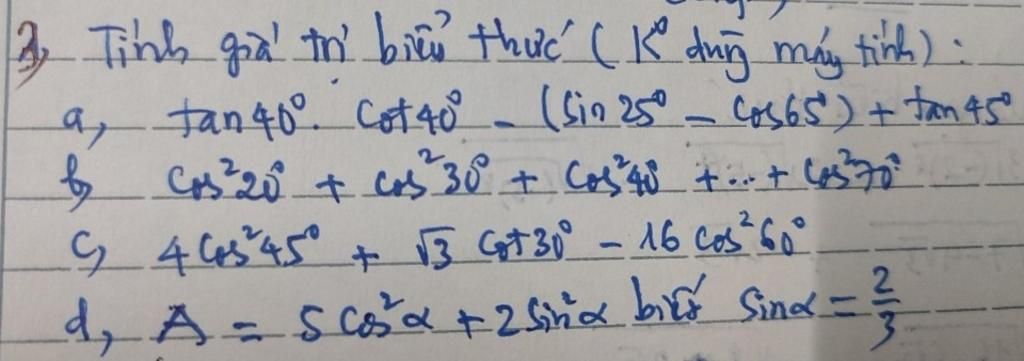 3, Tính giá trị biểu thức (K° dùng máy tính):
a, tan40°. cot40° - (sin25° - cos65°) + tan45°
b, cos²20° + cos²30° + cos²40° + ... + cos²70°
c, 4cos²45° + √3 cot30° - 16 cos²60°
d, A = 5cos²α + 2sin²α biết sinα = 2/3